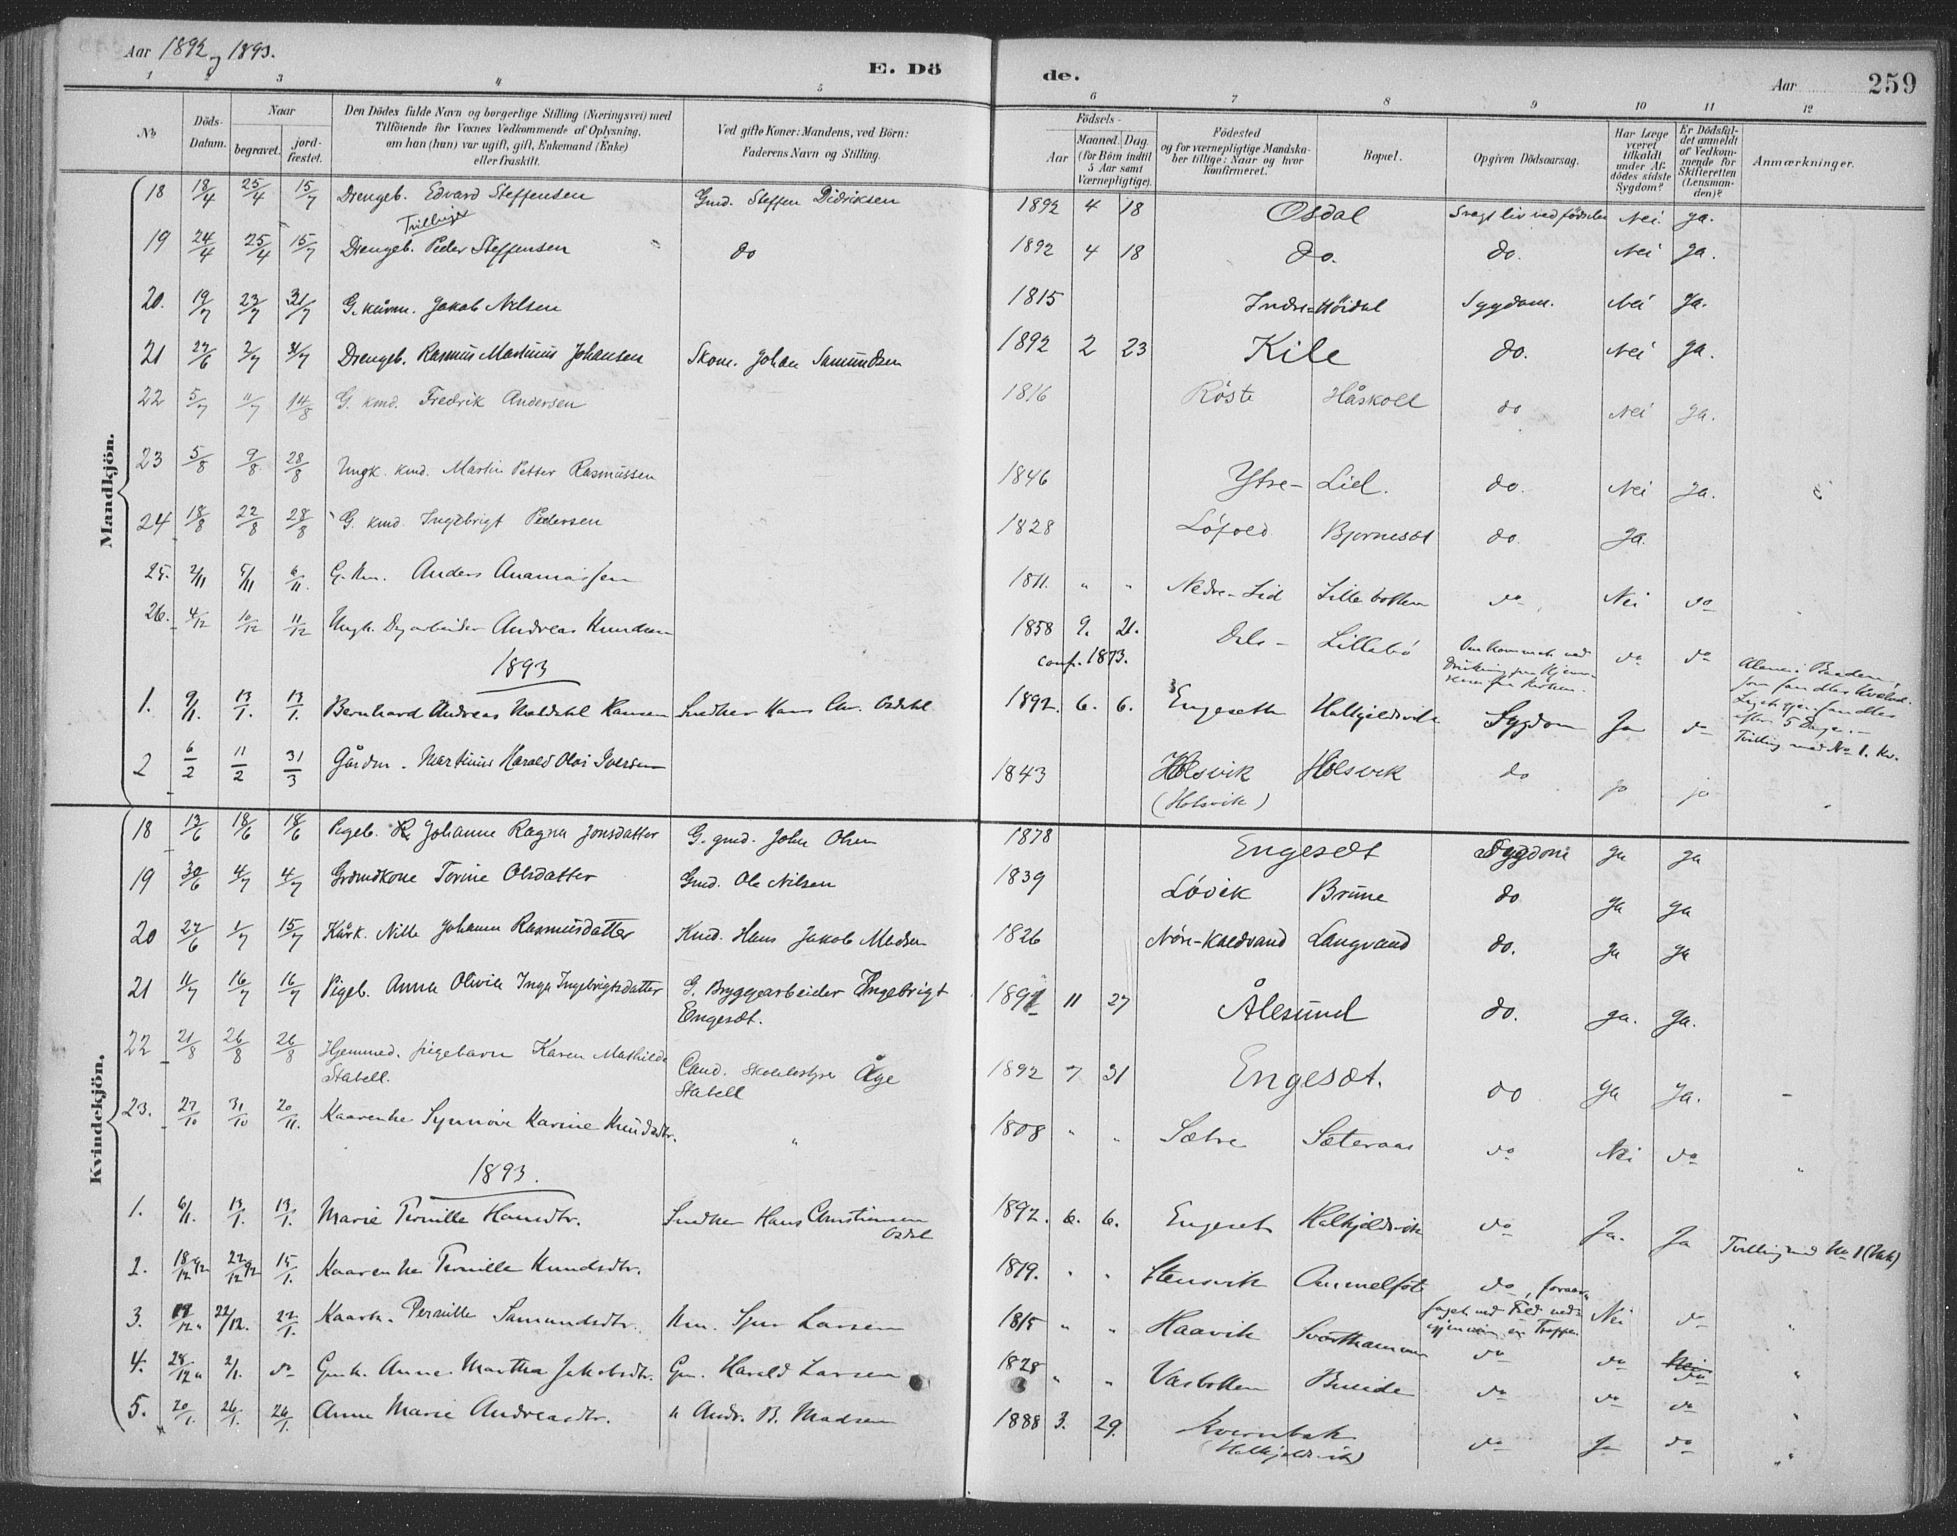 Aar 1892 og 1893.
E. Dö
de.
Aar
259
1 2 3 4 5 6 7 8 9 10 11 12
No
Döds-Datum.
Naar
begravet.
jord-fæstet.
Den Dödes fulde Navn og borgerlige Stilling (Næringsvei) med
Tilföiende for Voxnes Vedkommende af Oplysning,
om han (hun) var ugift, gift, Enkemand (Enke)
eller fraskilt.
Ved gifte Koner: Mandens, ved Börn:
Faderens Navn og Stilling.
Födsels-
Aar
Maaned. Dag
(for Börn indtil
5 Aar samt
Værnepligtige).
Födested
og for værnepligtige Mandska-
ber tillige: Naar og hvor
konfirmeret.
Bopæl.
Opgiven Dödsaarsag.
Har Læge
været
tilkaldt
under Af-
dödes sidste
Sygdom?
Er Dödsfal-
det anmeldt
af Vedkom-
mende for
Skifteretten
(Lensman-
den)?
Anmærkninger.
Mandkjön.
18 18/4 25/4 15/7 Drengeb. Edvard Steffensen Gmd. Steffen Didriksen 1892 4 18 Osdal Svagt liv ved fødselen Nei ja.
Tvillinger
19 24/4 25/4 15/7 Drengeb. Peder Steffensen do 1892 4 18 do. do. Nei ja.
20. 19/7 23/7 31/7 G. kårm. Jakob Nilsen 1815 Indre-Høidal Sygdom. Nei ja.
21 27/6 2/7 31/7 Drengeb. Rasmus Martinus Johansen Skom. Johan Samundsen 1892 2 23 Kile do. Nei ja.
22 5/7 11/7 14/8 G. kmd. Fredrik Andersen 1816 Røste Håskoll do Nei ja.
23 5/8 9/8 28/8 Ungk. kmd. Martin Petter Rasmussen 1846 Ytre- Lid. do. Nei ja.
24 18/8 22/8 28/8 G. kmd. Ingebrigt Pedersen 1828 Løfold Bjørneset do. ja.
25. 2/11 5/11 6/11. G. km. Anders Ananiassen 1811. " " Nedre-Lid Lillebotten do Nei do
26. 4/12 10/12 11/12 Ungk. Dagarbeider Andreas Knudsen 1858 9. 21. Dale- Lillebø Omkommet ved do do
conf. 1873.
1893
1. 9/1. 13/1. 13/1. Bernhard Andreas Meldahl Hansen Snedker Hans Chr. Osdahl 1892. 6. 6. Engeseth Halkjeldsvik Sygdom Ja do Tvilling med No 1. Kv.
2 6/2 11/2 31/3 Gårdm. Martinus Harald Olai Iversen 1843 Holsvik Holsvik do jo jo
(Holsvik)
Kvindekjön.
18 13/6 18/6 18/6 Pigeb. Johanne Ragna Jonsdatter G. gmd. John Olsen 1878 Engesæt Sygdom ja ja
19 30/6 4/7 4/7 Grdmdkone Torine Olsdatter Gmd. Ole Nilsen 1839 Løvik Brune do ja ja
20 27/6 1/7 15/7 Kårk. Nille Johanna Rasmusdatter Kmd. Hans Jakob Madsen 1826 Nøre-Kaldvand Langvand do. ja ja
21 11/7 16/7 16/7 Pigeb. Anna Olivia Inga Ingebrigtsdatter G. Bryggearbeider Engebrigt 1891 11 27 Ålesund do. ja. ja.
Engesæt.
22 21/8 26/8 26/8 Hjemmed. pigebarn Karen Mathilde Cand. Skolebestyrer Åge 1892 7 31 Engesæt. do ja ja.
Stabell. Stabell
23. 27/10 31/10 20/11. Kaarenke Synnøve Karine Knudsdtr. " 1808 " " Sætre Sæteraas do Nei do "
1893.
1. 6/1. 13/1. 13/1. Marie Pernille Hansdtr. Snedker Hans Christiansen 1892. 6. 6. Engeset Halkjeldsvik do Ja. Ja Tvilling med No 1 (Mk)
Osdal
2. 18/12 92 22/12 92 15/1. Kaarenke Pernille Knudsdtr. 1819. " " Stensvik Aamelfot do, foraar-
3. 22/12. 22/1. Kaark. Pernille Samundsdtr. Km. Sjur Larsen 1815 " " Haavik Svarthammer do Nei do "
4. 28/12 2/1. do Gmk. Anne Martha Jakobsdtr. Gm. Harald Larsen 1828 " " Vasbotten Bueide do do do "
5. 20/1. 26/1. 26/1. Anne Marie Andreasdtr. " Andr. B. Madsen 1888 3. 29. Kvernbak do Ja do "
(Halkjeldsvik)